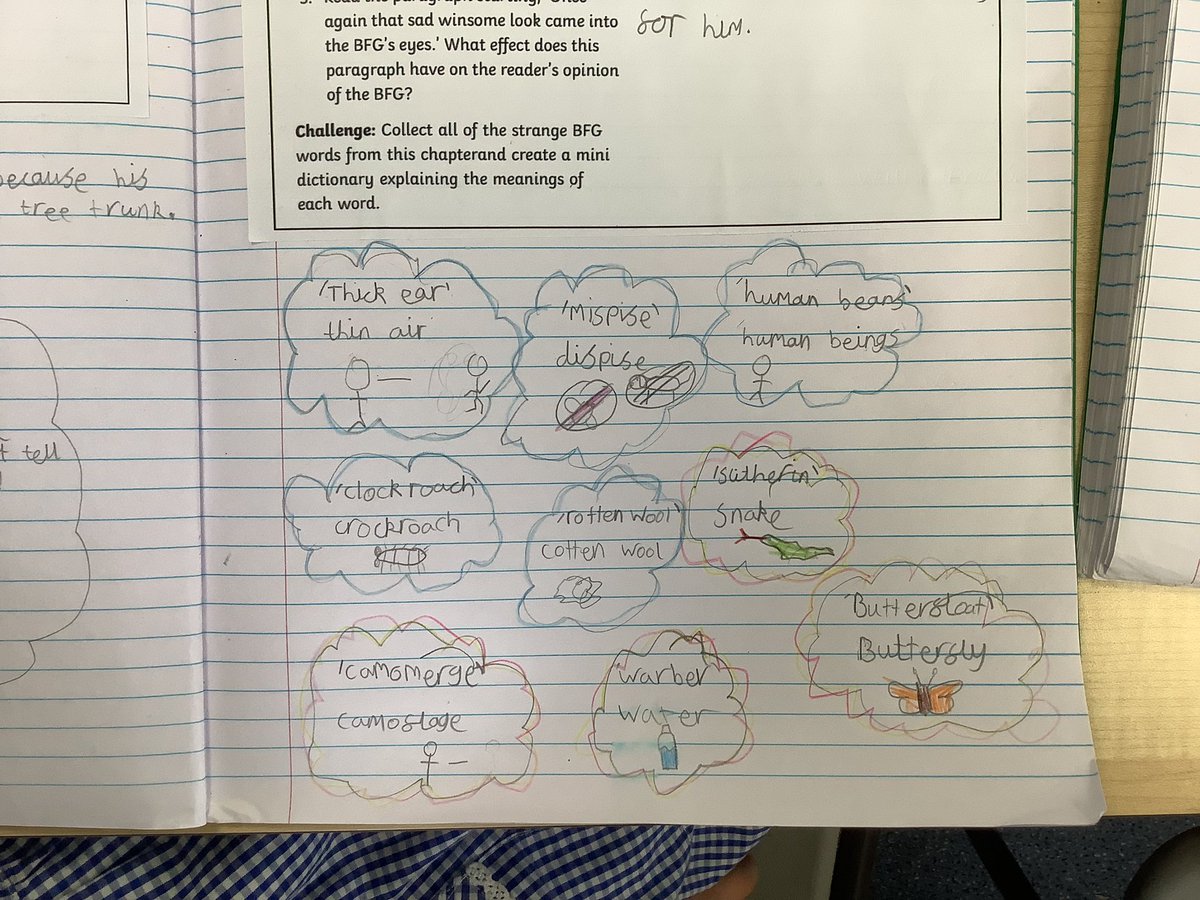 again that sad winsome look came into
the BFG's eyes.' What effect does this
paragraph have on the reader's opinion
of the BFG?
for him.
Challenge: Collect all of the strange BFG
words from this chapterand create a mini
dictionary explaining the meanings of
each word.
ecause his
tree trunk.
tell
'Thick ear'
thin air
'Mispise'
dispise
'human beans'
'human beings'
'clockroach'
crockroach
'rotten wool'
cotten wool
snake
'Butterfloat'
Butterfly
'camomerge'
camoflage
'warber'
water